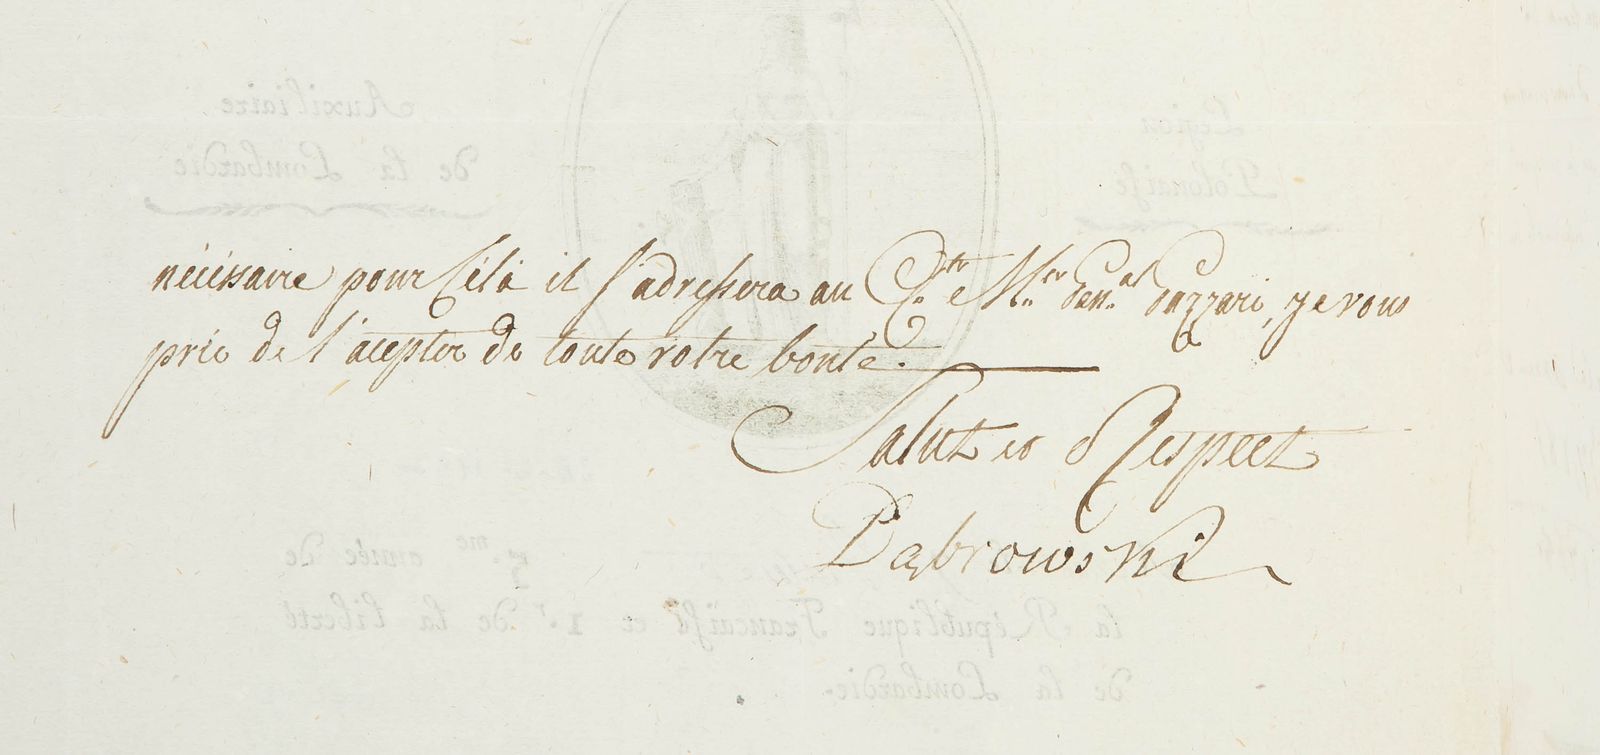 Légion
Polonaise
Auxiliaire
de la Lombardie
nécéssaire pour Célà il s'adressera au C.tr e M.er Gen.al Gazzari, je vous
prie de l'acepter de toute votre bonté.
Salut et Respect
Dąbrowski
5.me année de
la République Francaise et 1.r de la liberté
de la Lombardie.